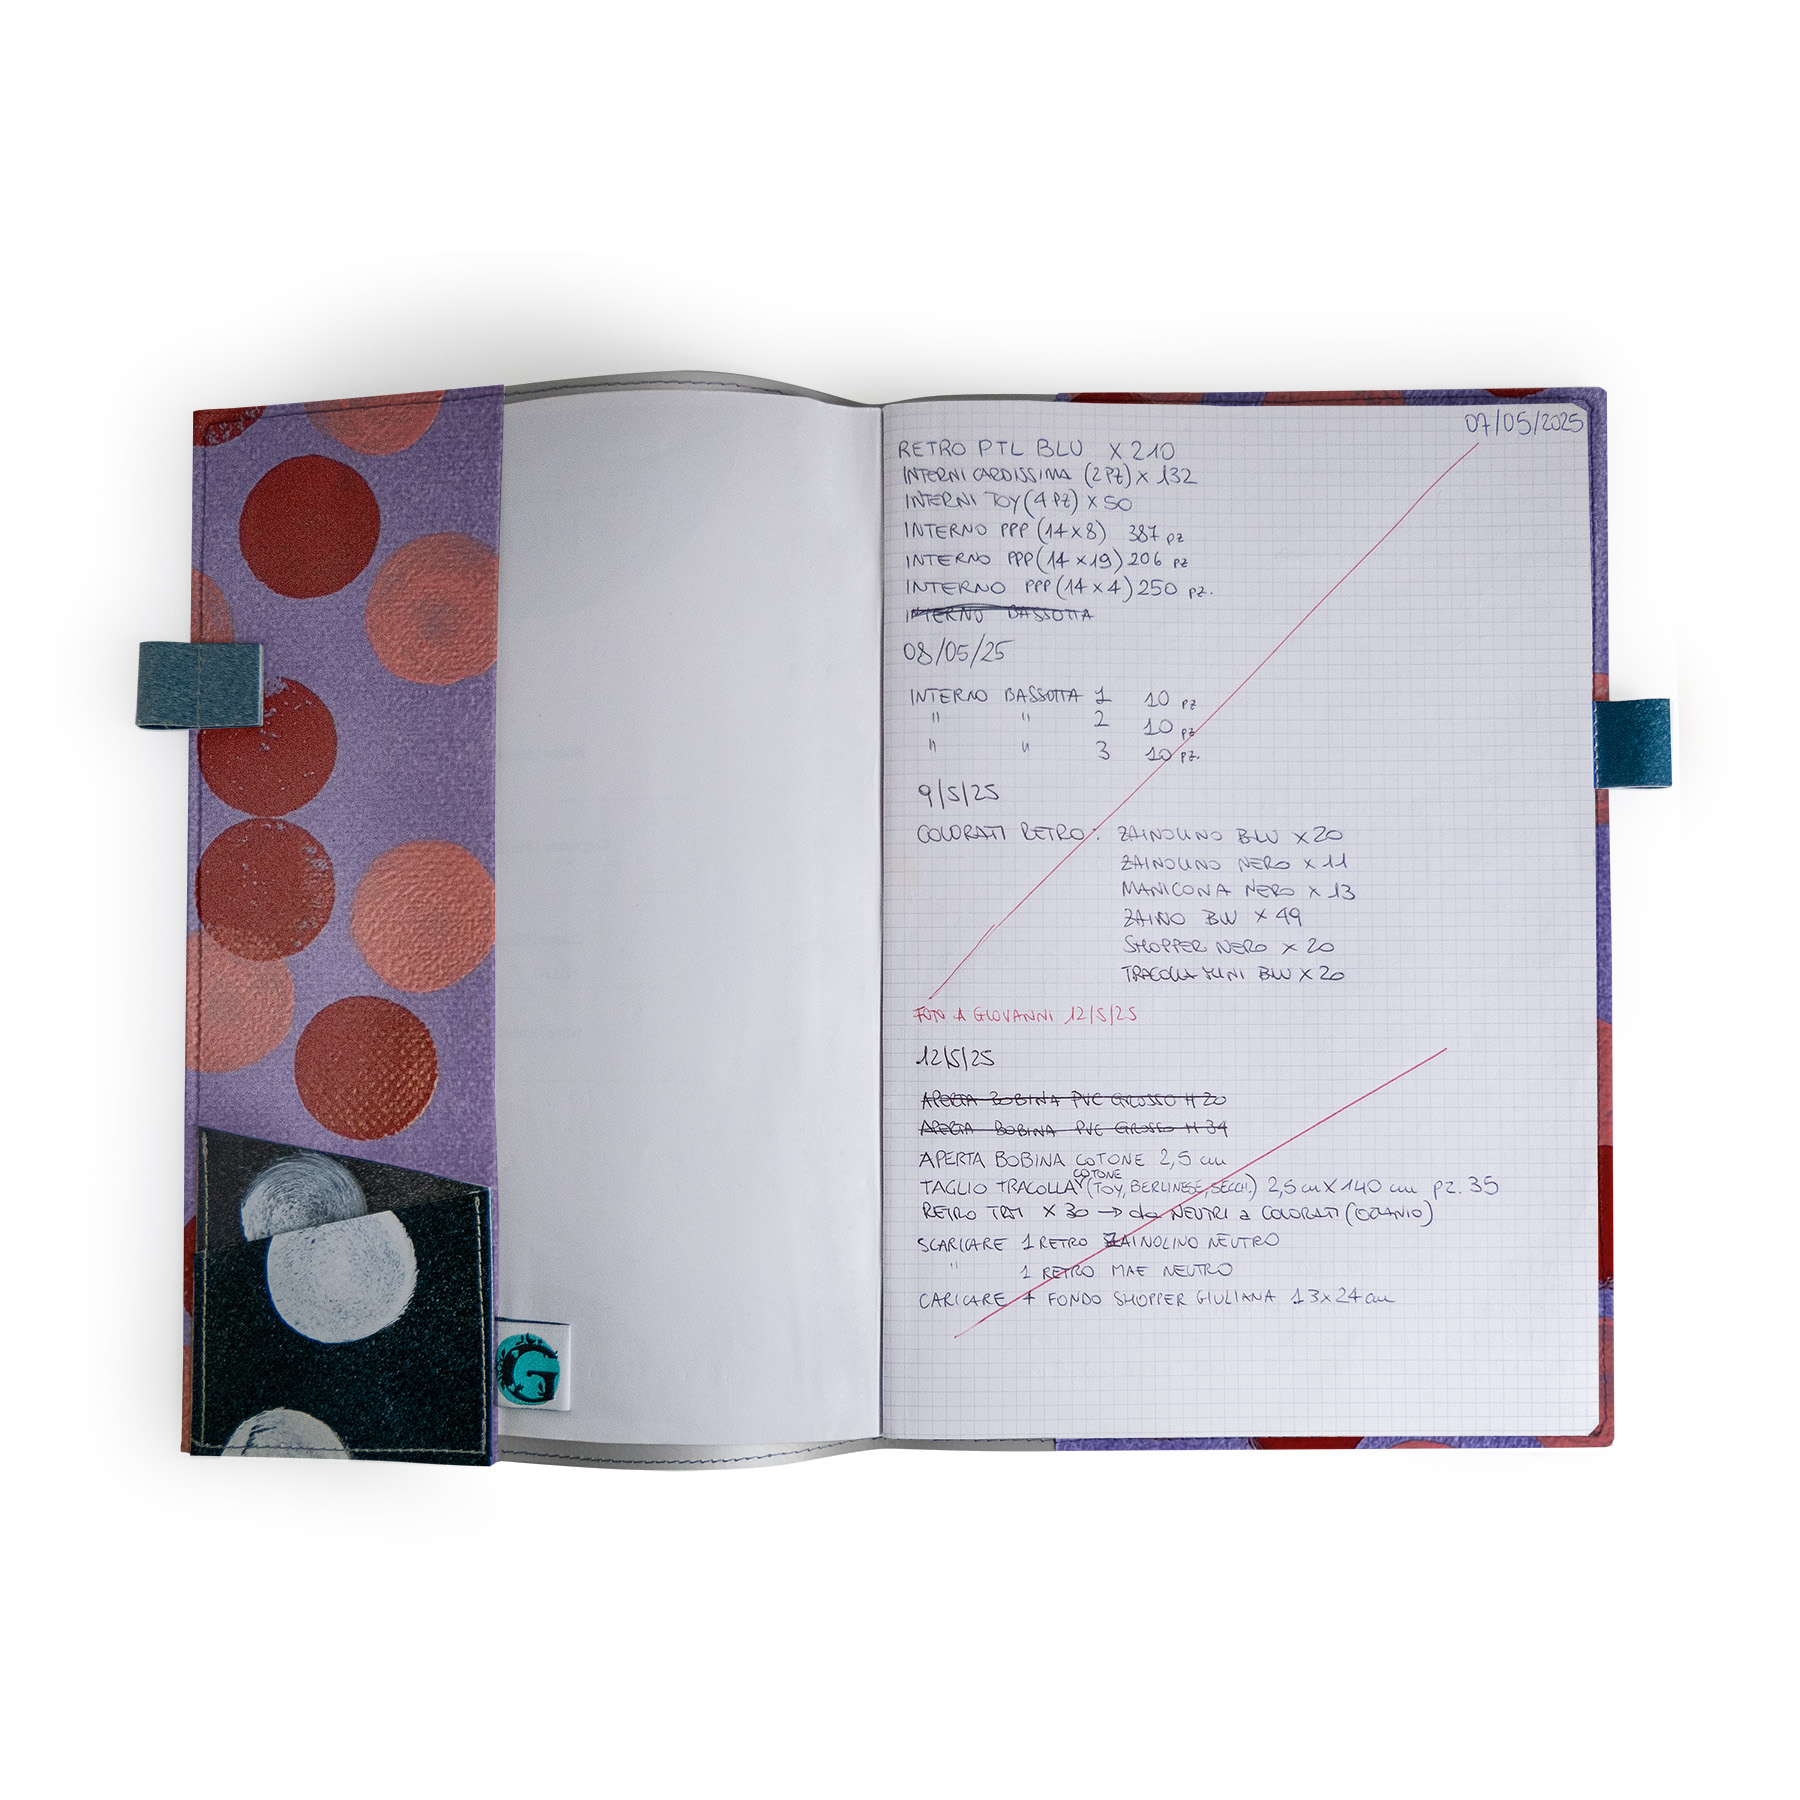 07/05/2025
RETRO PTL BLU X 210
INTERNI CARDISSIMA (2 PZ) X 132
INTERNI TOY (4 PZ) X 50
INTERNO PPP (14 X 8) 387 PZ
INTERNO PPP (14 X 19) 206 PZ
INTERNO PPP (14 X 4) 250 PZ.
INTERNO BASSOTTA
08/05/25
INTERNO BASSOTTA 1 10 PZ
" " 2 10 PZ
" " 3 10 PZ.
9/5/25
COLORATI RETRO: ZAINOLINO BLU X 20
ZAINOLINO NERO X 11
MANICONA NERO X 13
ZAINO BLU X 49
SHOPPER NERO X 20
TRACOLLA MINI BLU X 20
FOTO A GIOVANNI 12/5/25
12/5/25
APERTA BOBINA PVC GROSSO H 20
APERTA BOBINA PVC GROSSO H 34
APERTA BOBINA COTONE 2,5 cm
TAGLIO TRACOLLA COTONE (TOY, BERLINESE, SECCH.) 2,5 cm X 140 cm pz. 35
RETRO TRAI X 30 → da NEUTRI a COLORATI (OTTANIO)
SCARICARE 1 RETRO ZAINOLINO NEUTRO
" 1 RETRO MAE NEUTRO
CARICARE 1 FONDO SHOPPER GIULIANA 13 X 24 cm
G